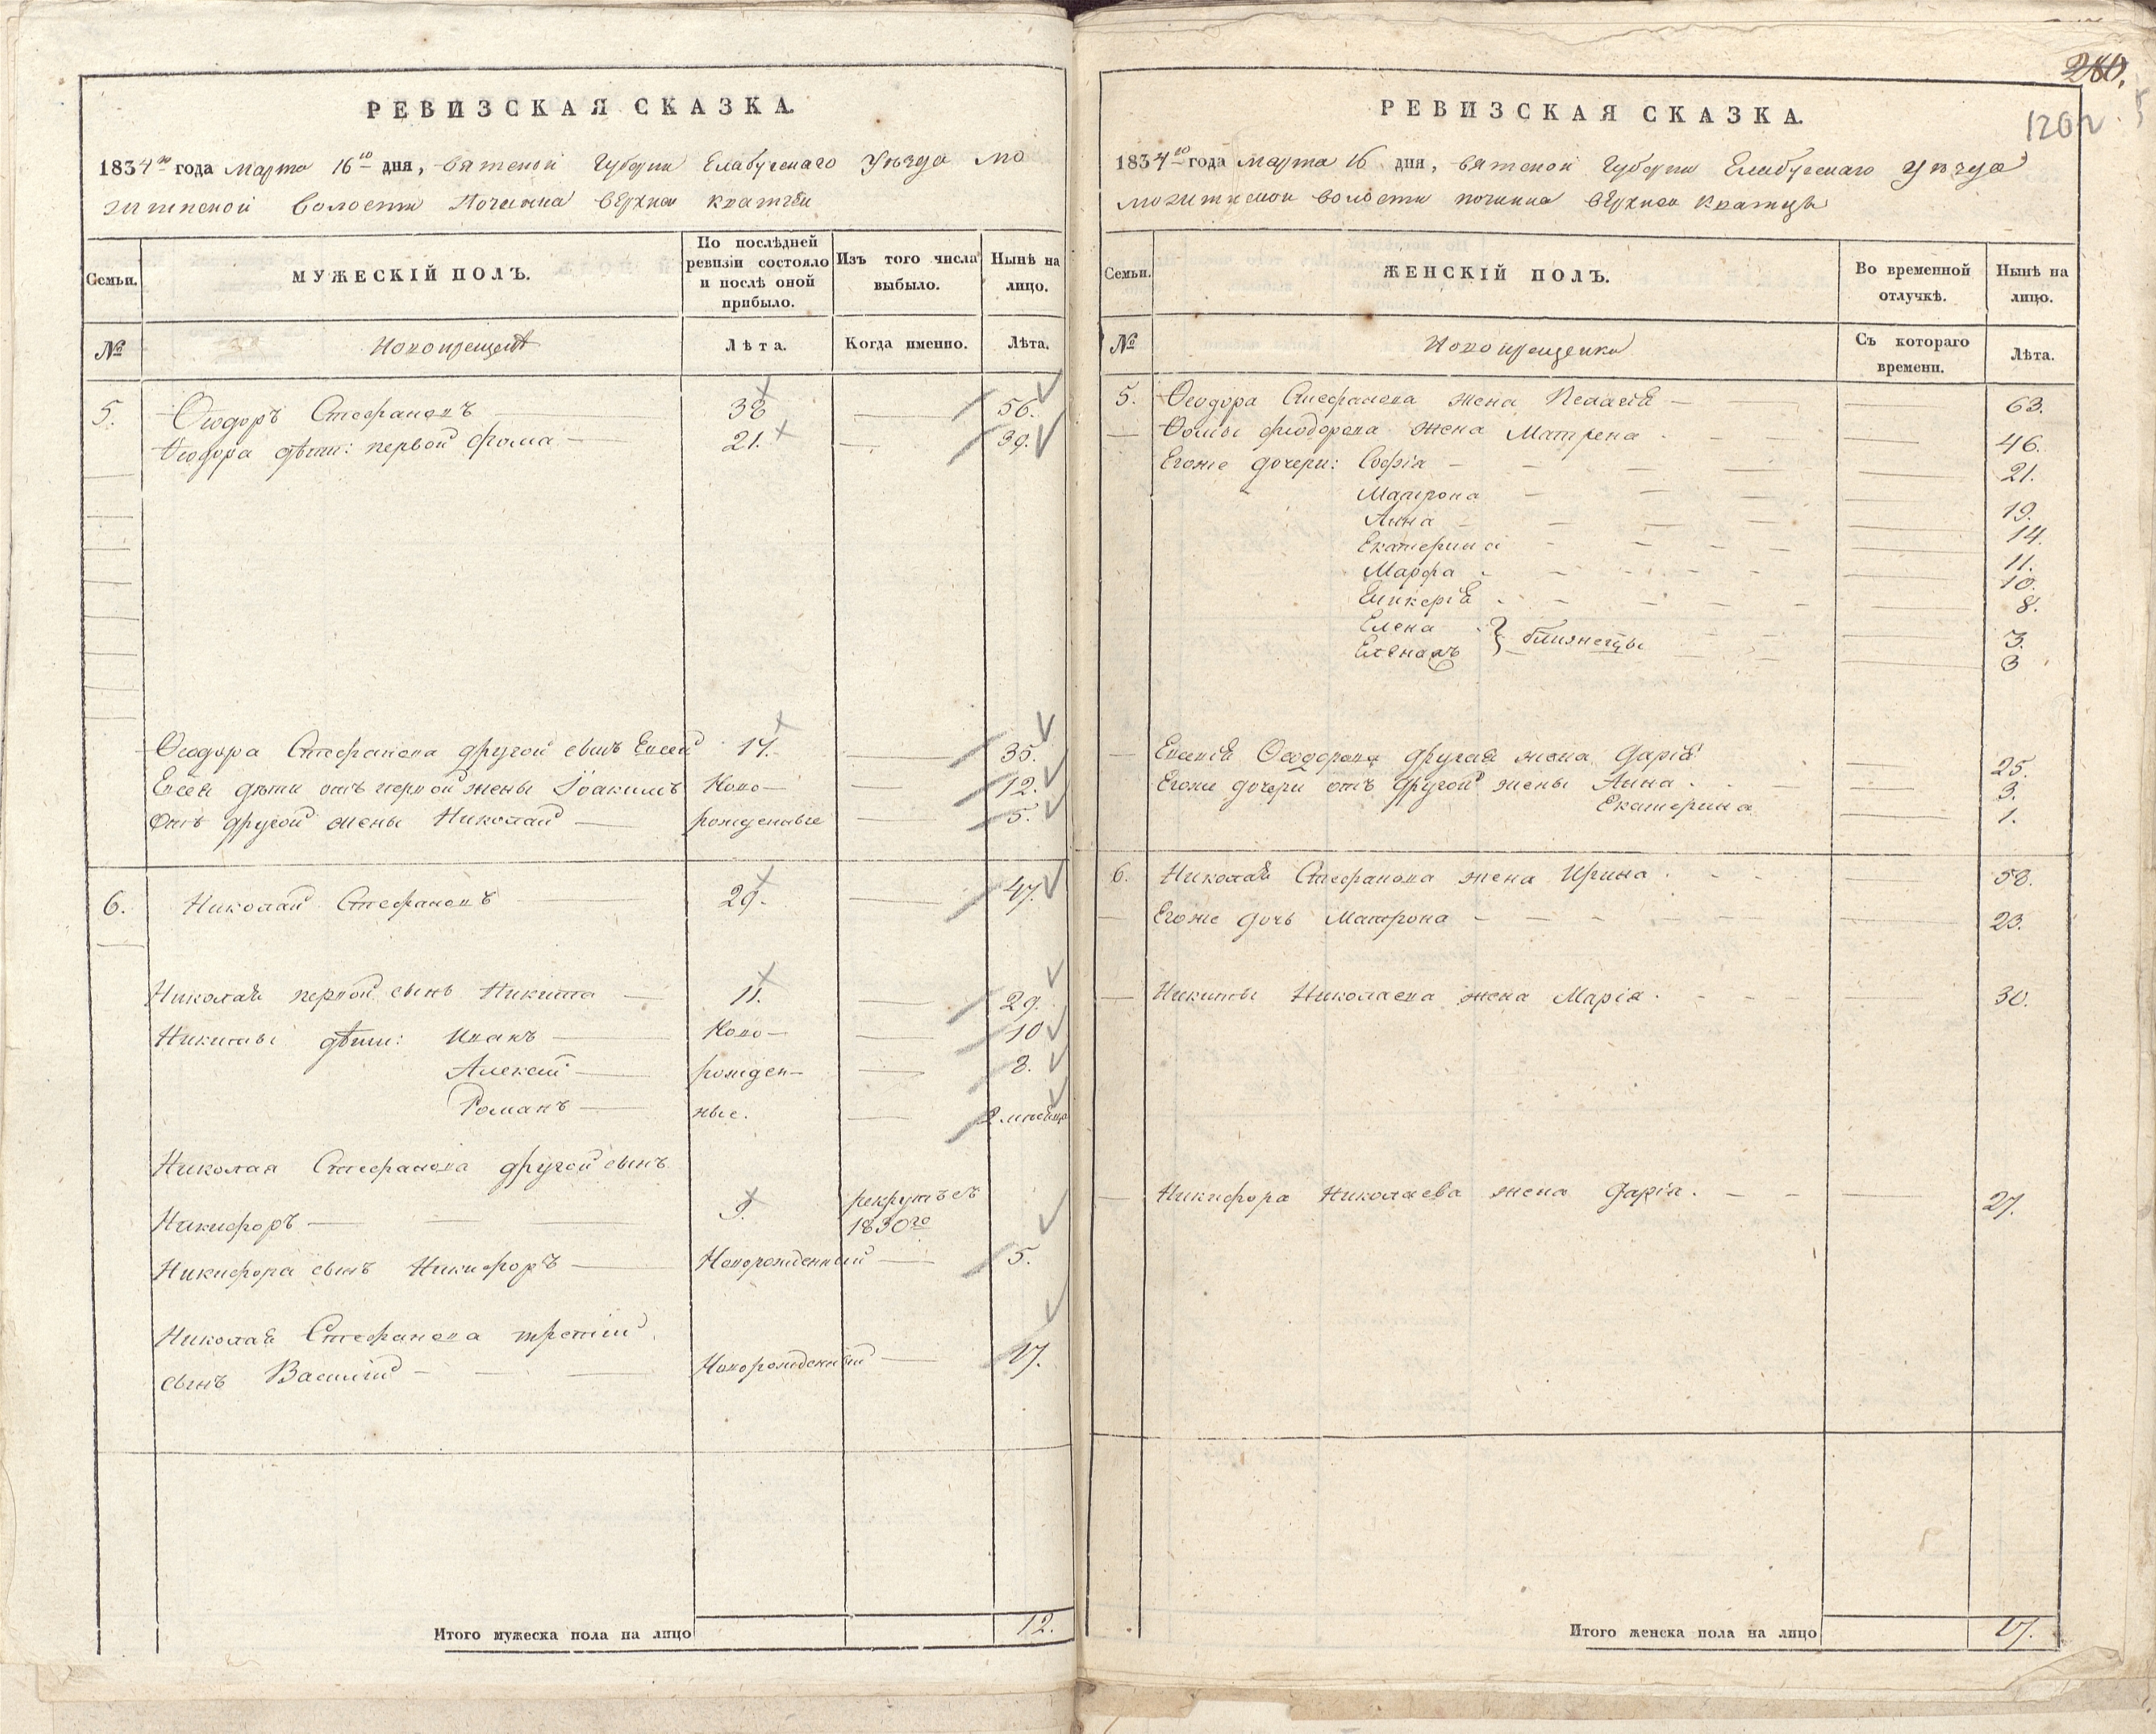 РЕВИЗСКАЯ СКАЗКА.
1834го года марта 16го дня, вятской Губернии Елабугскаго Уѣзда мо
житнской волости Починка верхней
Семьи.
МУЖЕСКІЙ ПОЛЪ.
По послѣдней ревизіи состояло и послѣ оной прибыло.
Изъ того числа выбыло.
Нынѣ на лицо.
№
Новокрещены
Лѣта.
Когда именно.
Лѣта.
5. Ѳеодоръ Стефановъ — 38 — 56.
Ѳеодора дѣти: первой Фома — 21. — 39.
Ѳеодора Стефанова другой сынъ Евсей 17. — 35.
Евсея дѣти отъ первой жены Іоакимъ Ново— — 12.
Отъ другой жены Николай — рожденные — 5.
6. Николай Стефановъ — 29. — 47.
Николая первой сынъ Никита — 11. — 29.
Никиты дѣти: Иванъ — Ново— — 10
Алексѣй — рожден— — 8.
Романъ — ные. — 2 мѣсяца
Николая Стефанова другой сынъ
Никифоръ — 9. рекрутъ съ 1830го
Никифора сынъ Никифоръ — Новорожденный — 5.
Николая Стефанова третій
сынъ Василій — Новорожденный — 17.
Итого мужеска пола на лицо 12.
280.
126
РЕВИЗСКАЯ СКАЗКА.
1834го года марта 16 дня, вятской Губернии Елабугскаго Уѣзда
волости починка верхней
Семьи.
ЖЕНСКІЙ ПОЛЪ.
Во временной отлучкѣ.
Нынѣ на лицо.
№
Новокрещенки
Съ котораго времени.
Лѣта.
5. Ѳеодора Стефанова жена Пелагея — 63.
Ѳомы Фиодорова жена Матрена — 46.
Егоже дочери: Софія — 21.
Матрона — 19.
Анна — 14.
Екатерина — 11.
Марфа — 10.
Гликерія — 8.
Елена } близнецы — 3.
— 3
Евсея Ѳеодорова другая жена Дарія — 25.
Егоже дочери отъ другой жены Анна — 3.
Екатерина — 1.
6. Николая Стефанова жена Ирина — 58.
Егоже дочь Матрона — 23.
Никиты Николаева жена Марія — 30.
Никифора Николаева жена Дарія. — 27.
Итого женска пола на лицо 17.